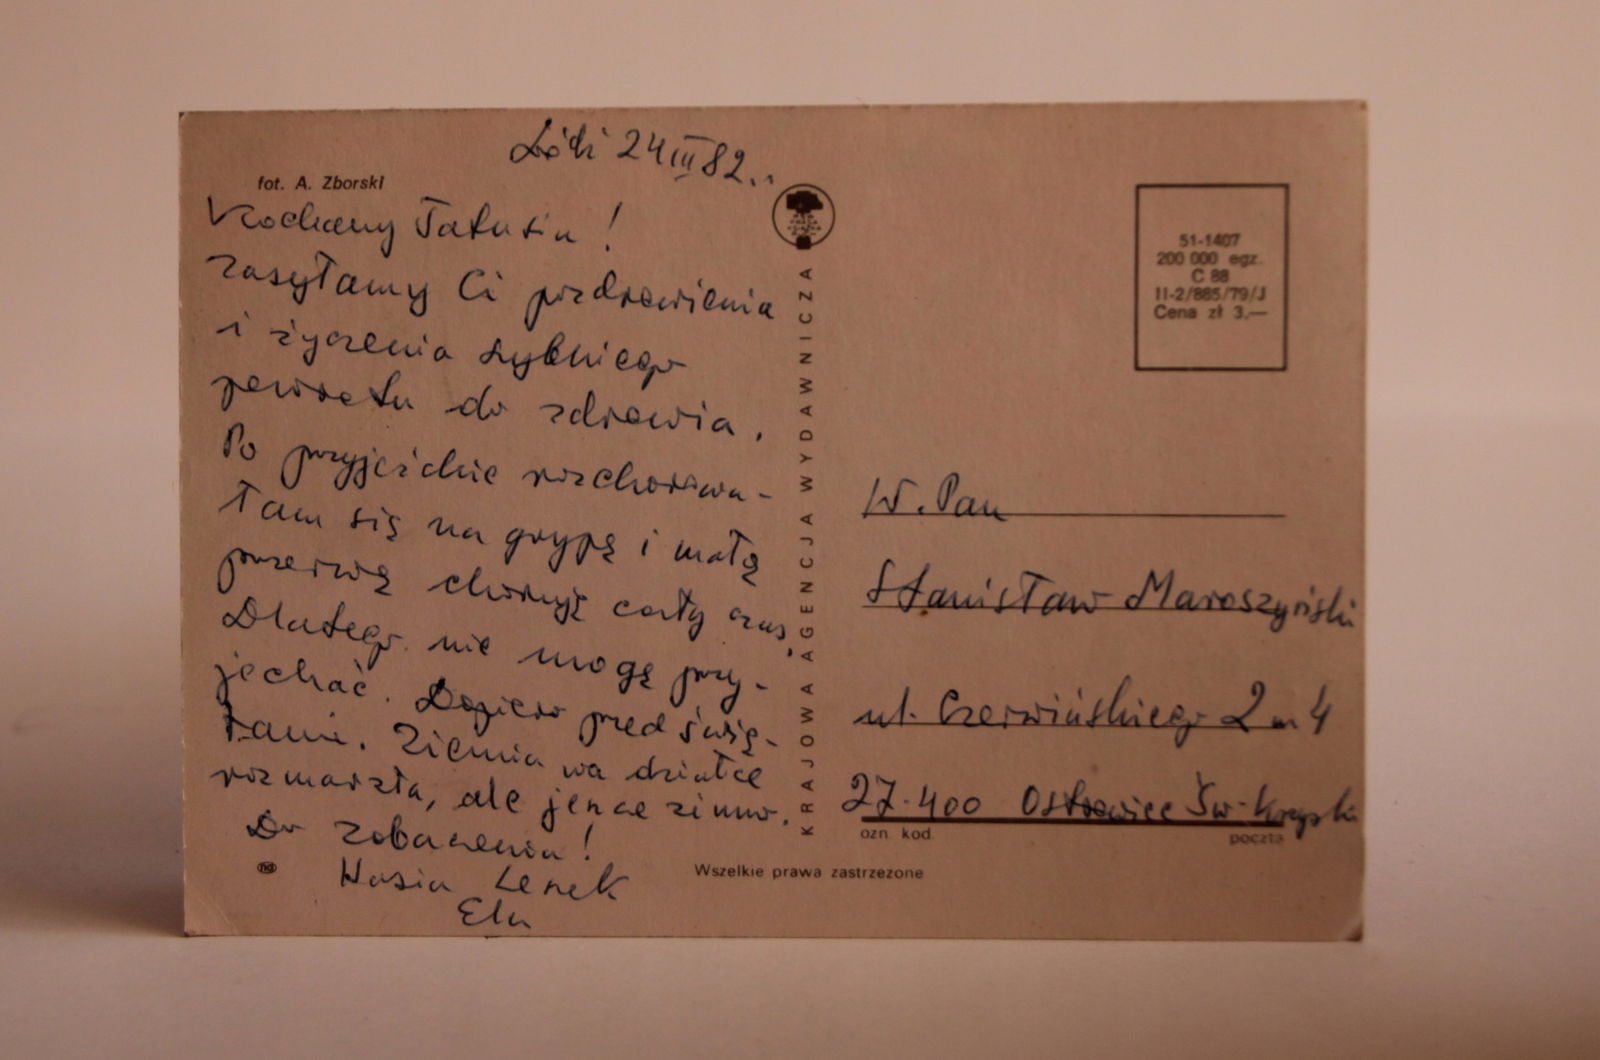 Łódź 24 III 82..
fot. A. Zborski
Kochany Tatusiu!
Zasyłamy Ci pozdrowienia
i życzenia szybkiego
powrotu do zdrowia.
Po przyjeździe rozchorowa-
łam się na grypę i małą
przerwą choruję cały czas,
Dlatego nie mogę przy-
jechać. Dopiero przed świę-
tami. Ziemia na działce
rozmarzła, ale jeszcze zimno.
Do zobaczenia!
Lenek
Ela
KRAJOWA AGENCJA WYDAWNICZA
Wszelkie prawa zastrzeżone
51-1407
200 000 egz.
C 88
II-2/885/79/J
Cena zł 3,—
W. Pan
Stanisław Maroszyński
ul. Czerwińskiego 2 m 4
27-400 Ostrowiec Św-krzyski
ozn. kod.
poczta